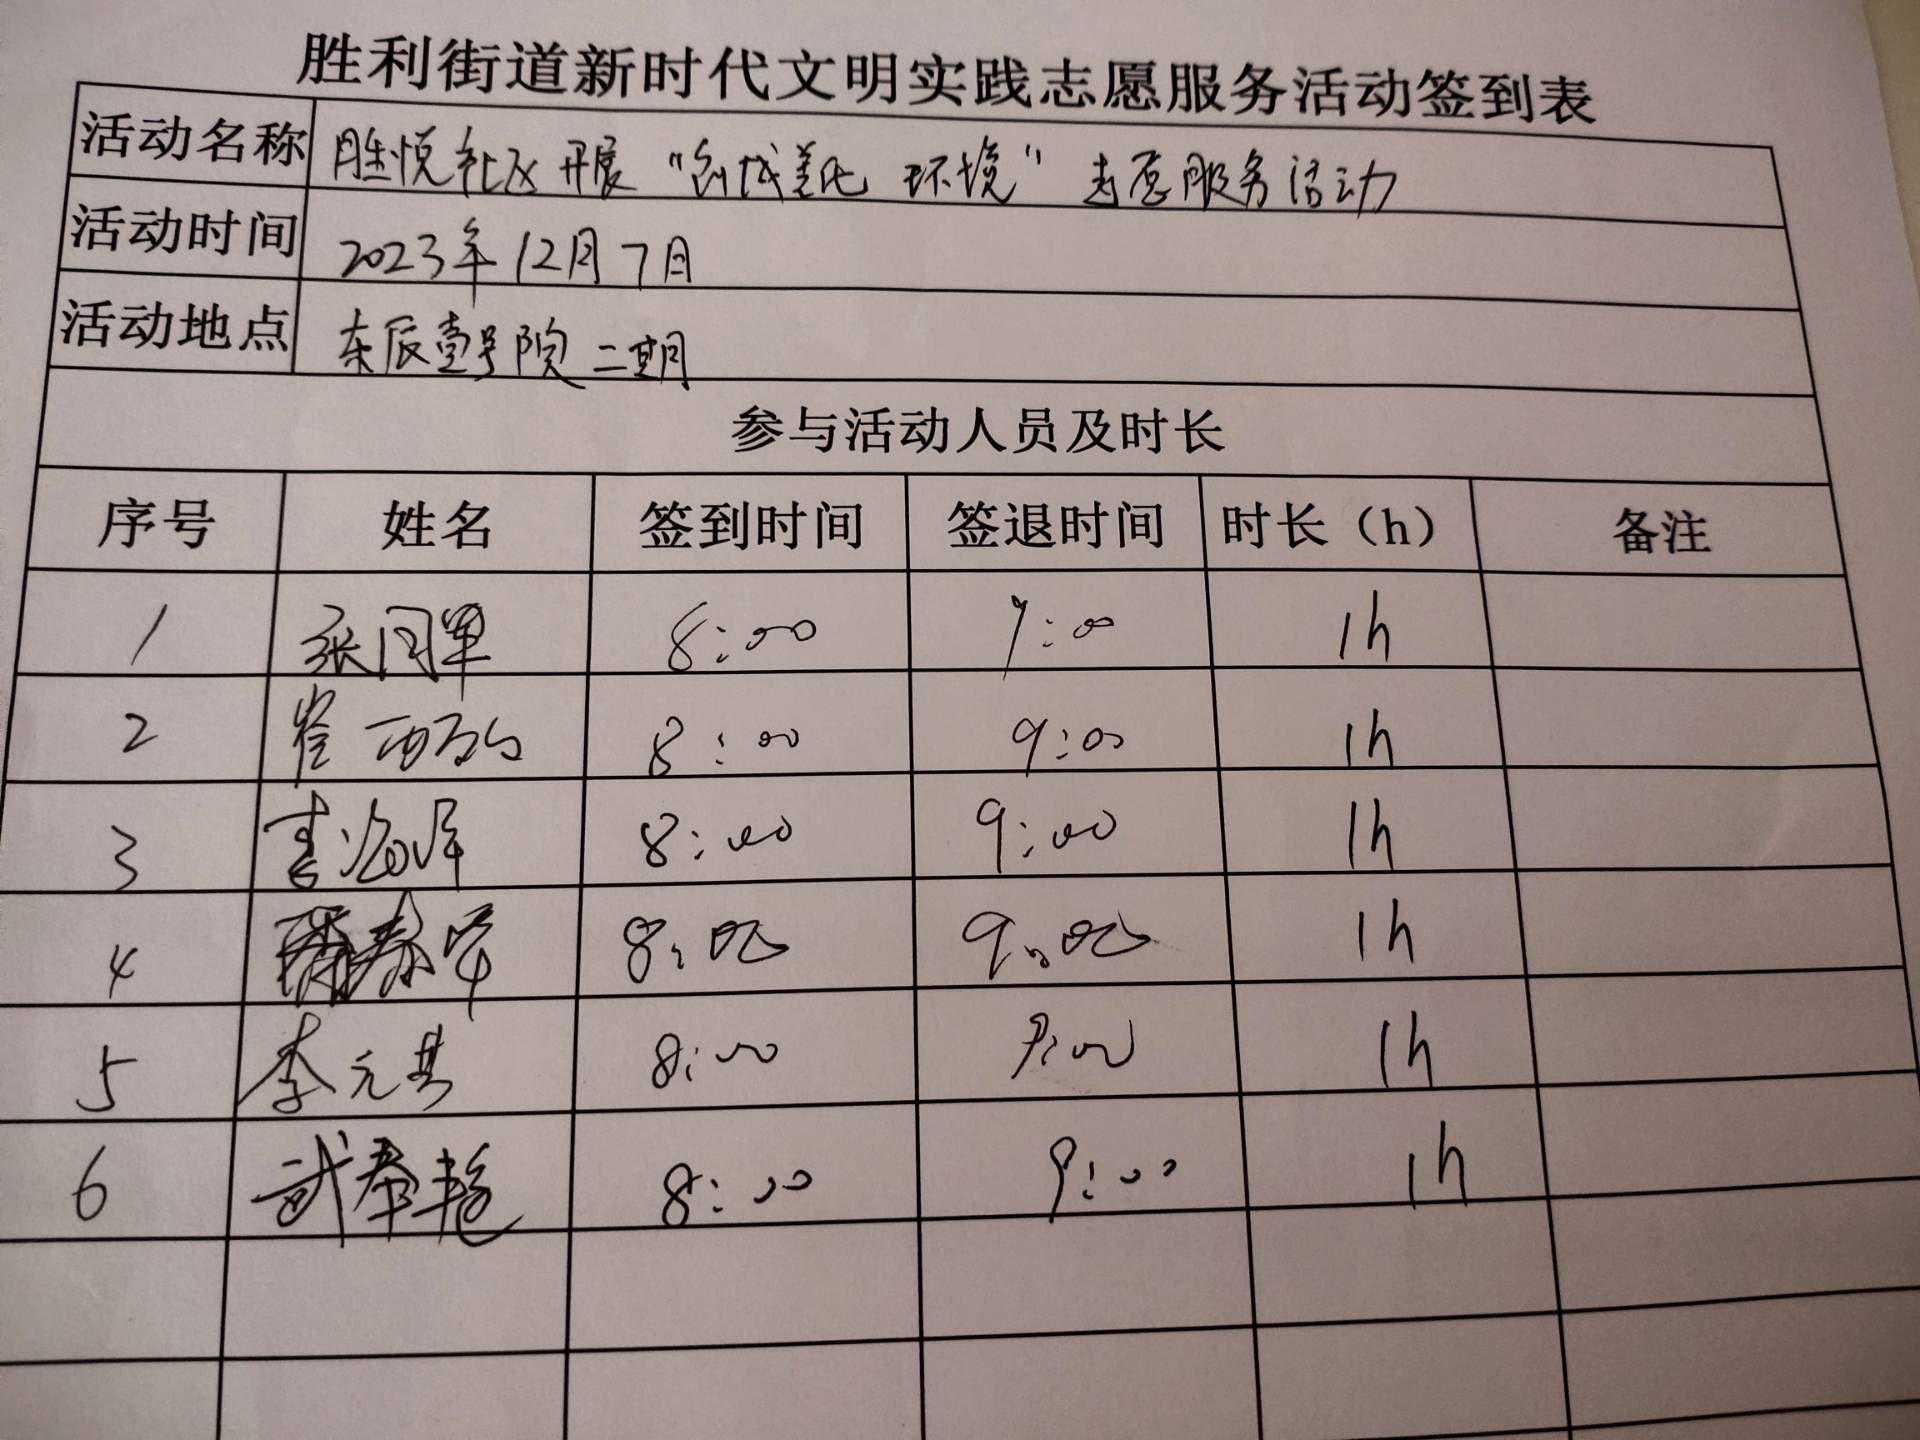 胜利街道新时代文明实践志愿服务活动签到表
活动名称 胜悦社区开展“创城美化环境”志愿服务活动
活动时间 2023年12月7日
活动地点 东辰壹号院二期
参与活动人员及时长
序号 姓名 签到时间 签退时间 时长（h） 备注
1 张同军 8:00 9:00 1h
2 崔 8:00 9:00 1h
3 8:00 9:00 1h
4 8:00 9:00 1h
5 李元其 8:00 9:00 1h
6 武春艳 8:00 9:00 1h